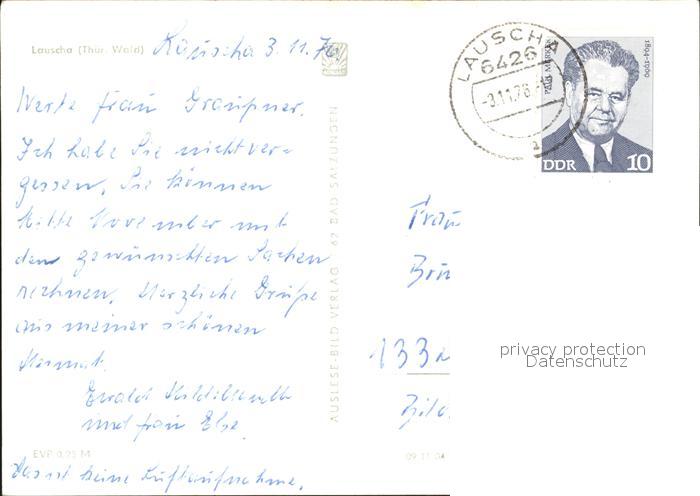 Lauscha (Thür. Wald)
3.11.76
Werte Frau Graupner.
Ich habe Sie nicht ver=
gessen, Sie können
Mitte November mit
den gewünschten Sachen
rechnen, Herzliche Grüße
aus meiner schönen
Heimat.
Ewald
und Frau Else
Das ist keine Luftaufnahme.
EVP 0,25 M
AUSLESE-BILD VERLAG 62 BAD SALZUNGEN
LAUSCHA
6426
-3.11.76
a
1894-1969
DDR 10
Frau
133
09 11 04
privacy protection
Datenschutz